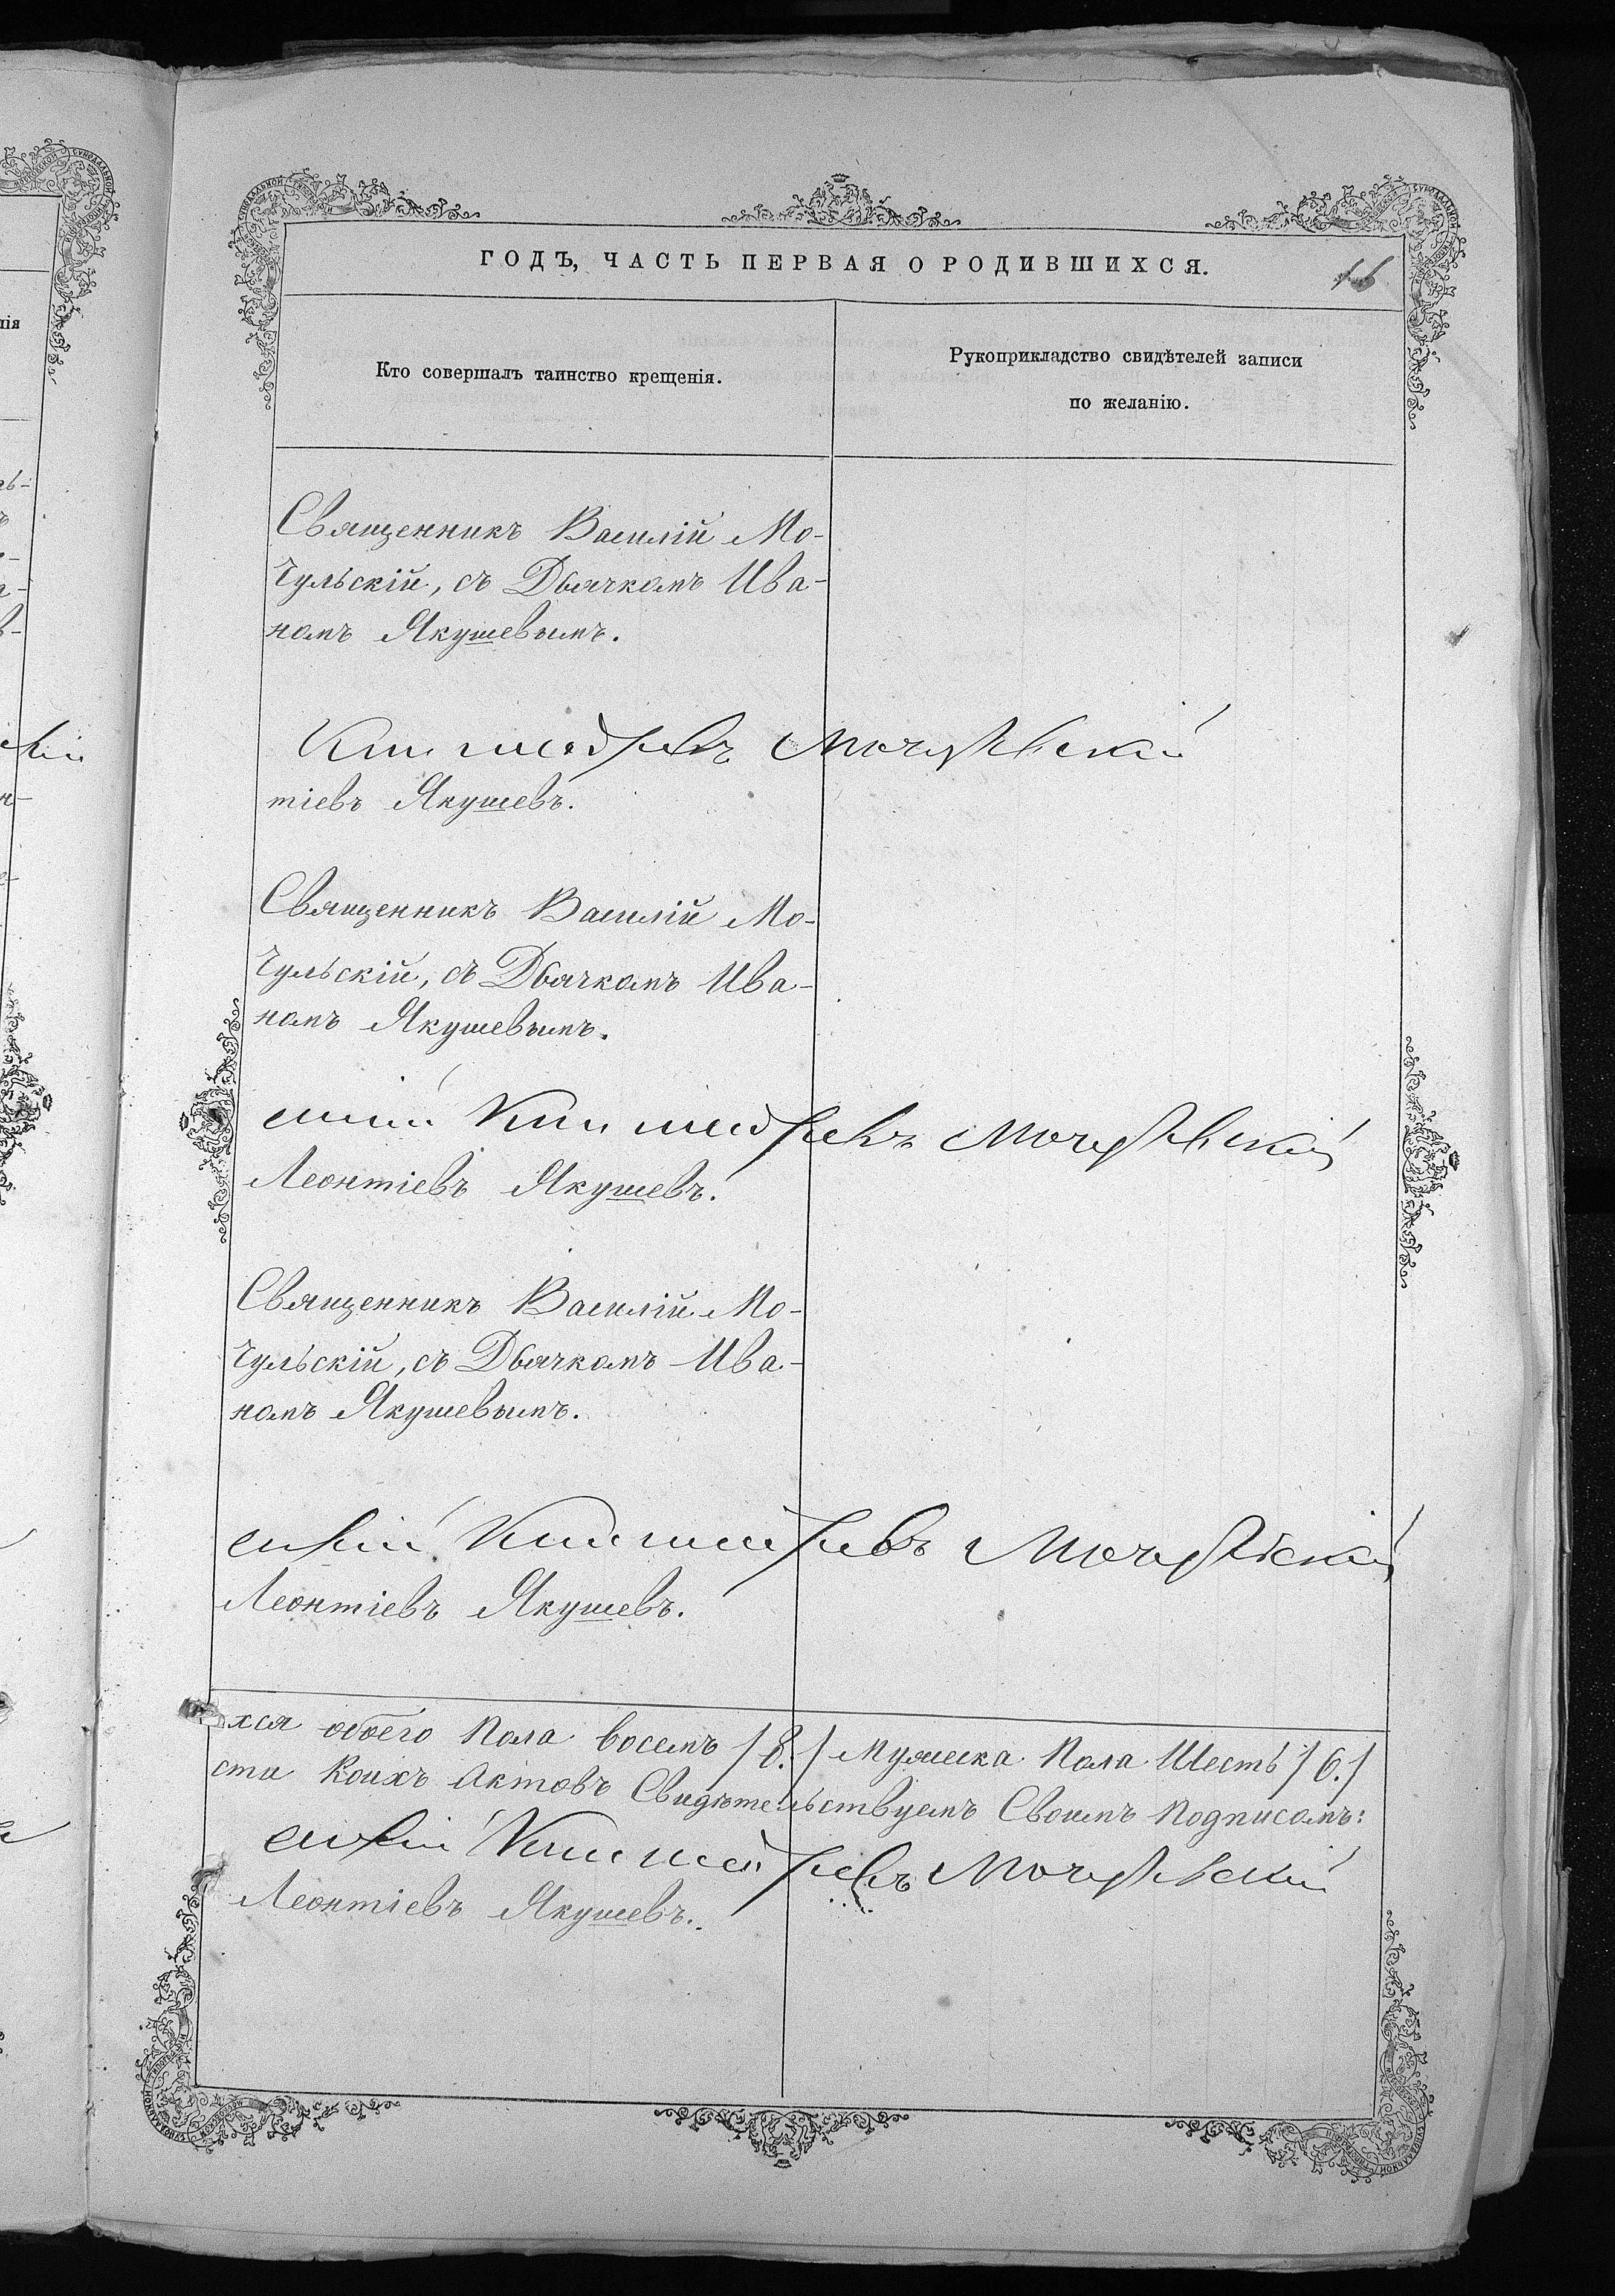 ГОДЪ, ЧАСТЬ ПЕРВАЯ О РОДИВШИХСЯ.
16
Кто совершалъ таинство крещенія.
Рукоприкладство свидѣтелей записи
по желанію.
Священникъ Василій Мо-
чульскій, съ Дьячкомъ Ива-
номъ Якушевымъ.
Мочульскій
тіевъ Якушевъ.
Священникъ Василій Мо-
чульскій, съ Дьячкомъ Ива-
номъ Якушевымъ.
Мочульскій
Леонтіевъ Якушевъ.
Священникъ Василій Мо-
чульскій, съ Дьячкомъ Ива-
номъ Якушевымъ.
Мочульскій
Леонтіевъ Якушевъ.
хся обоего Пола восемъ /8./ Мужеска Пола Шесть /6./
сти Коихъ Актовъ Свидѣтельствуемъ Своимъ Подписомъ:
Мочульскій
Леонтіевъ Якушевъ.